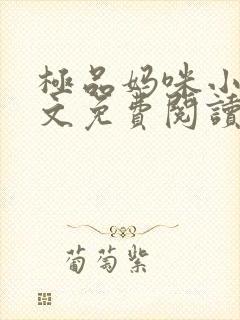 極品妈咪小
文免費閱讀
葡萄紫